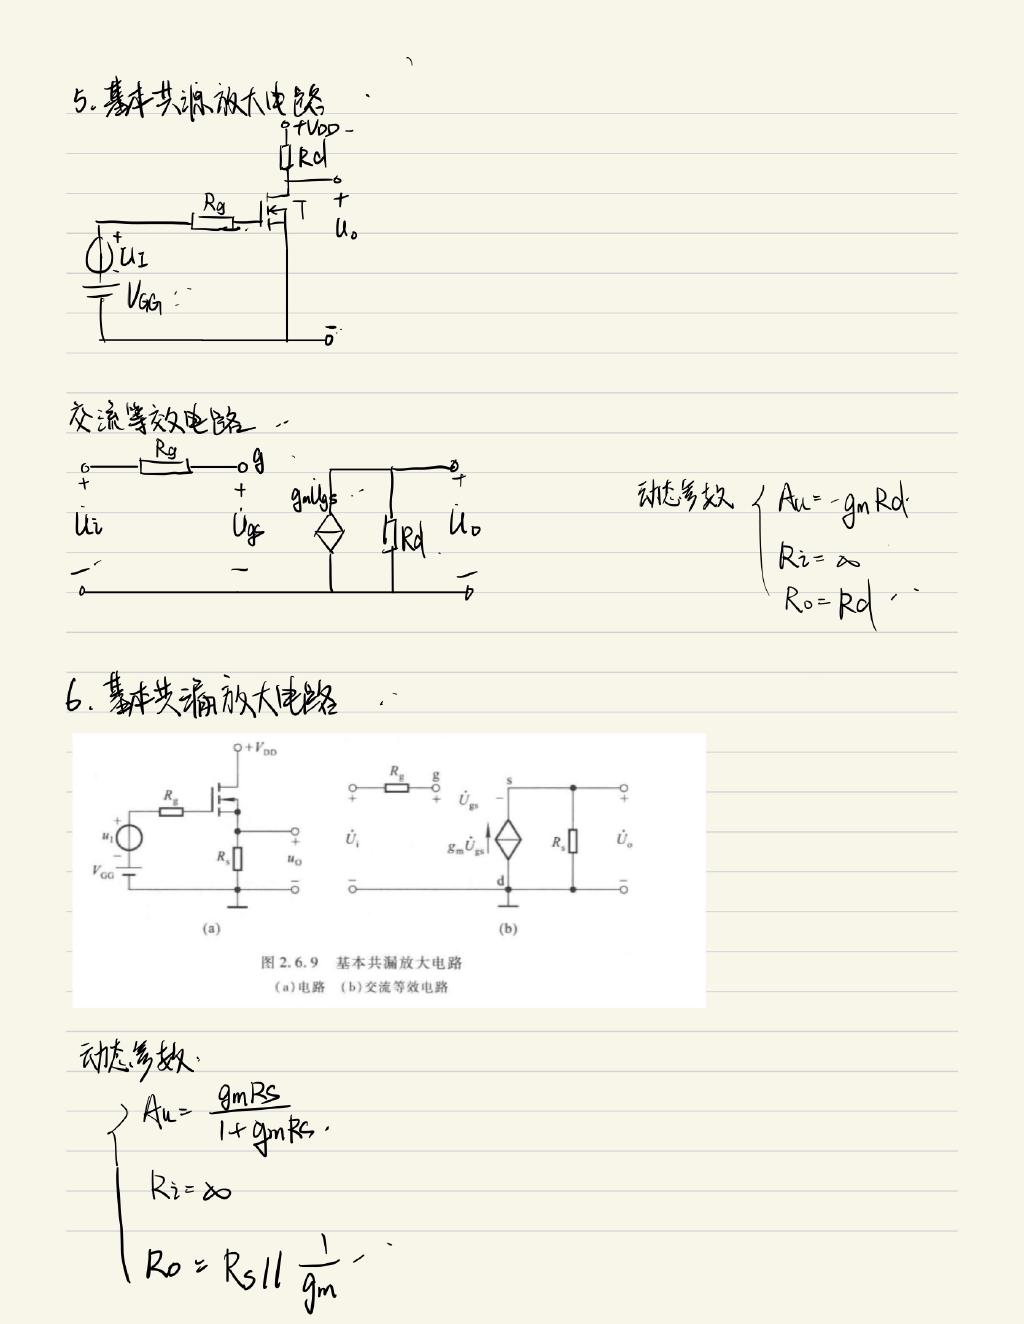 5. 基本共源放大电路
+VDD
Rd
Rg
T
+
uo
+
uI
-
VGG
-
交流等效电路
Rg g
+ + gmU̇gs +
U̇i U̇gs Rd U̇o
- - -
动态参数 { Au = -gmRd
Ri = ∞
Ro = Rd
6. 基本共漏放大电路
+VDD
Rg
+
uI
-
VGG
Rs
+
uO
-
(a)
Rg g s
+ + U̇gs - +
U̇i gmU̇gs Rs U̇o
- d -
(b)
图 2.6.9 基本共漏放大电路
(a)电路 (b)交流等效电路
动态参数:
{ Au = gmRs / (1+gmRs)
Ri = ∞
Ro = Rs // 1/gm